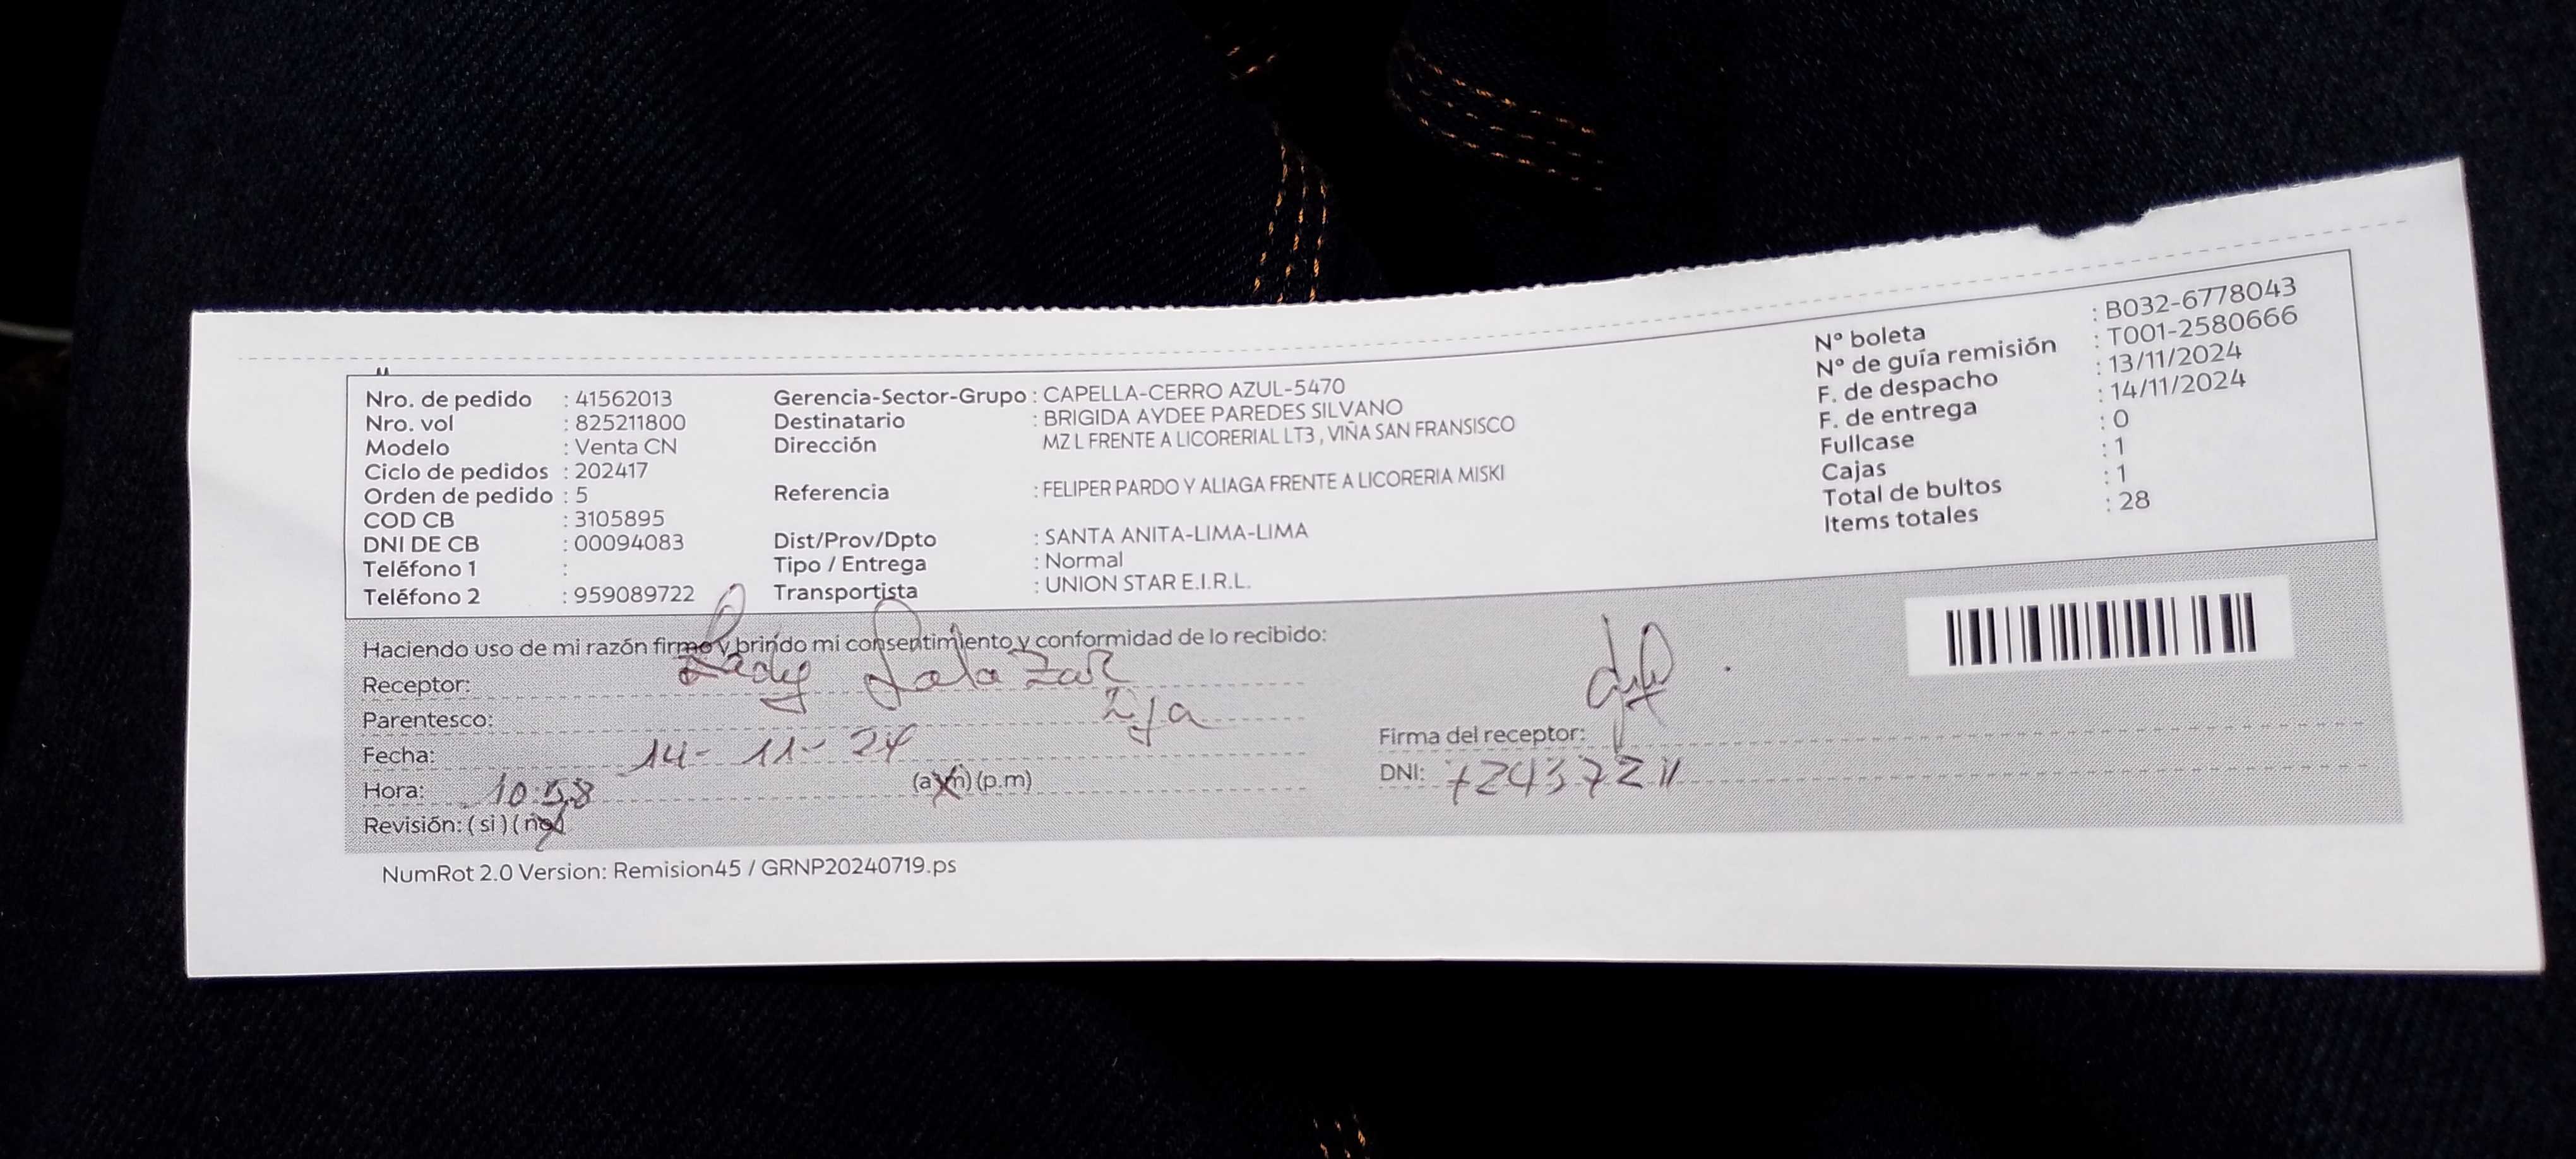 Nro. de pedido : 41562013
Nro. vol : 825211800
Modelo : Venta CN
Ciclo de pedidos : 202417
Orden de pedido : 5
COD CB : 3105895
DNI DE CB : 00094083
Teléfono 1 :
Teléfono 2 : 959089722
Gerencia-Sector-Grupo : CAPELLA-CERRO AZUL-5470
Destinatario : BRIGIDA AYDEE PAREDES SILVANO
Dirección MZ L FRENTE A LICORERIAL LT3 , VIÑA SAN FRANSISCO
Referencia : FELIPER PARDO Y ALIAGA FRENTE A LICORERIA MISKI
Dist/Prov/Dpto : SANTA ANITA-LIMA-LIMA
Tipo / Entrega : Normal
Transportista : UNION STAR E.I.R.L.
Nº boleta : B032-6778043
Nº de guía remisión : T001-2580666
F. de despacho : 13/11/2024
F. de entrega : 14/11/2024
Fullcase : 0
Cajas : 1
Total de bultos : 1
Items totales : 28
Haciendo uso de mi razón firmo y brindo mi consentimiento y conformidad de lo recibido:
Receptor: Lady Salazar
Parentesco:
Fecha: 14-11-24
Hora: 10:58 (a.m) (p.m)
Revisión: ( si ) ( no )
Firma del receptor:
DNI: 72437211
NumRot 2.0 Version: Remision45 / GRNP20240719.ps